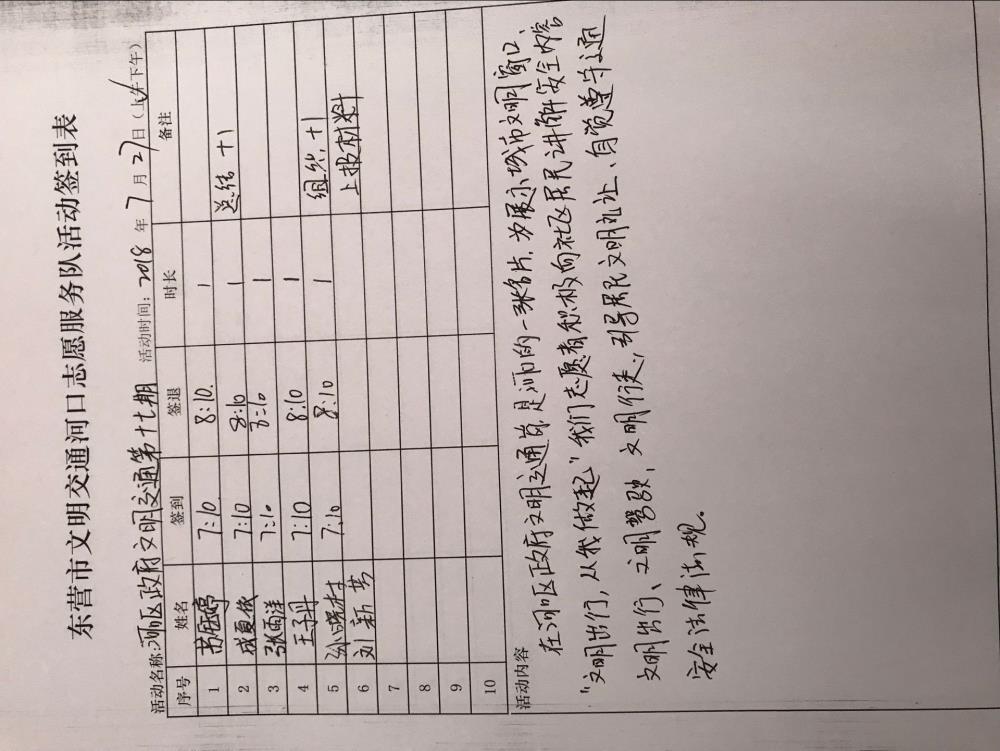 东营市文明交通河口志愿服务队活动签到表
活动名称:河口区政府文明交通第十七期 活动时间:2018年7月27日(上午下午)
序号 姓名 签到 签退 时长 备注
1 7:10 8:10. 1
2 成夏依 7:10 8:10 1 总结+1
3 张雨洋 7:10 8:10 1
4 王子丹 7:10 8:10 1
5 孙晓村 7:10 8:10 1 组织,+1
6 刘新 上报材料
7
8
9
10
活动内容
在河口区政府文明交通岗,是河口的一张名片,为展示城市文明窗口,
"文明出行,从我做起"我们志愿者积极向社区居民讲解安全内容
文明出行、文明驾驶,文明行走,引导居民文明礼让、自觉遵守交通
安全法律法规。